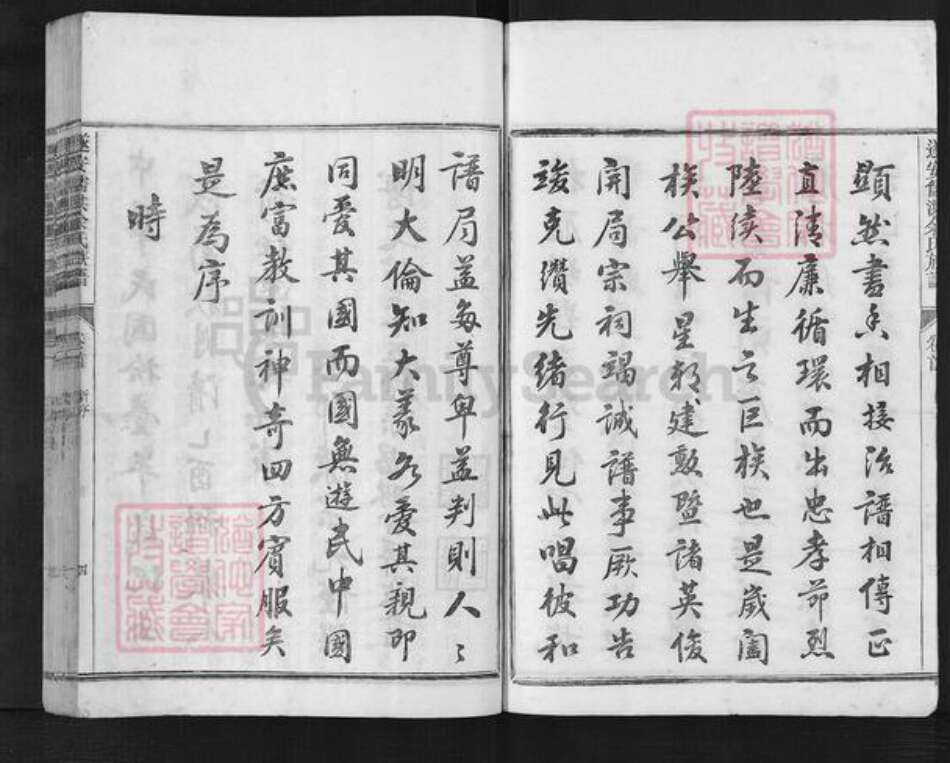 顯然書香相接治譜相傳正
直清廉循環而出忠孝節烈
陸續而生云巨族也是歲闔
族公舉星郲建敦暨諸英俊
開局宗祠竭誠譜事厥功告
竣克纘先緒行見此唱彼和
譜局益每尊卑益判則人〻
明大倫知大義各愛其親即
同愛其國而國無遊民中國
庶富教訓神奇四方賓服矣
是為序
時
FamilySearch